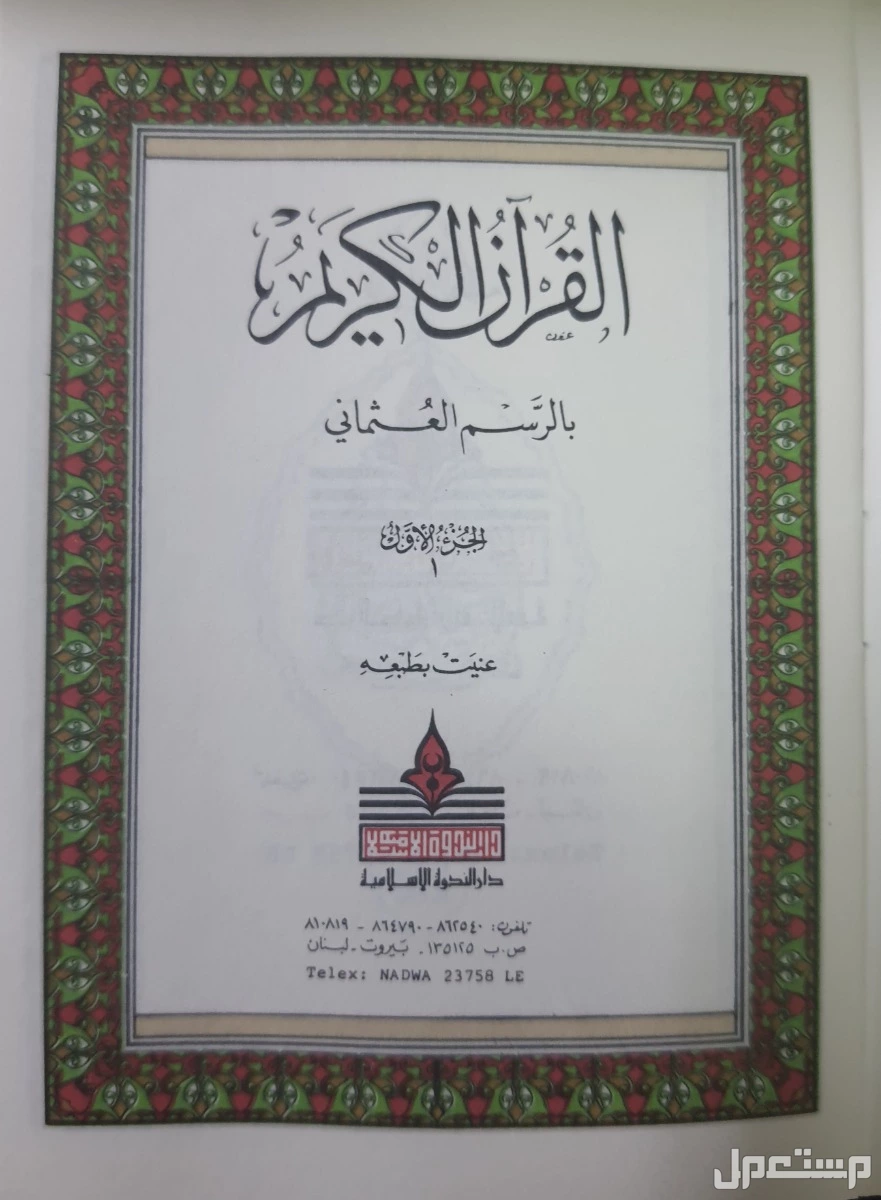 القُرآنُ الكَرِيمُ
بالرَّسْم العُثماني
الجُزءُ الأوَّلُ
١
عنيَت بطَبْعِهِ
دار الندوة الإسلامية
دار الندوة الإسلامية
تلفون: ٨٦٢٥٤٠ - ٨٦٤٧٩٠ - ٨١٠٨١٩
ص.ب ١٣٥١٢٥. بَيروت - لبنان
Telex: NADWA 23758 LE
مستعمل